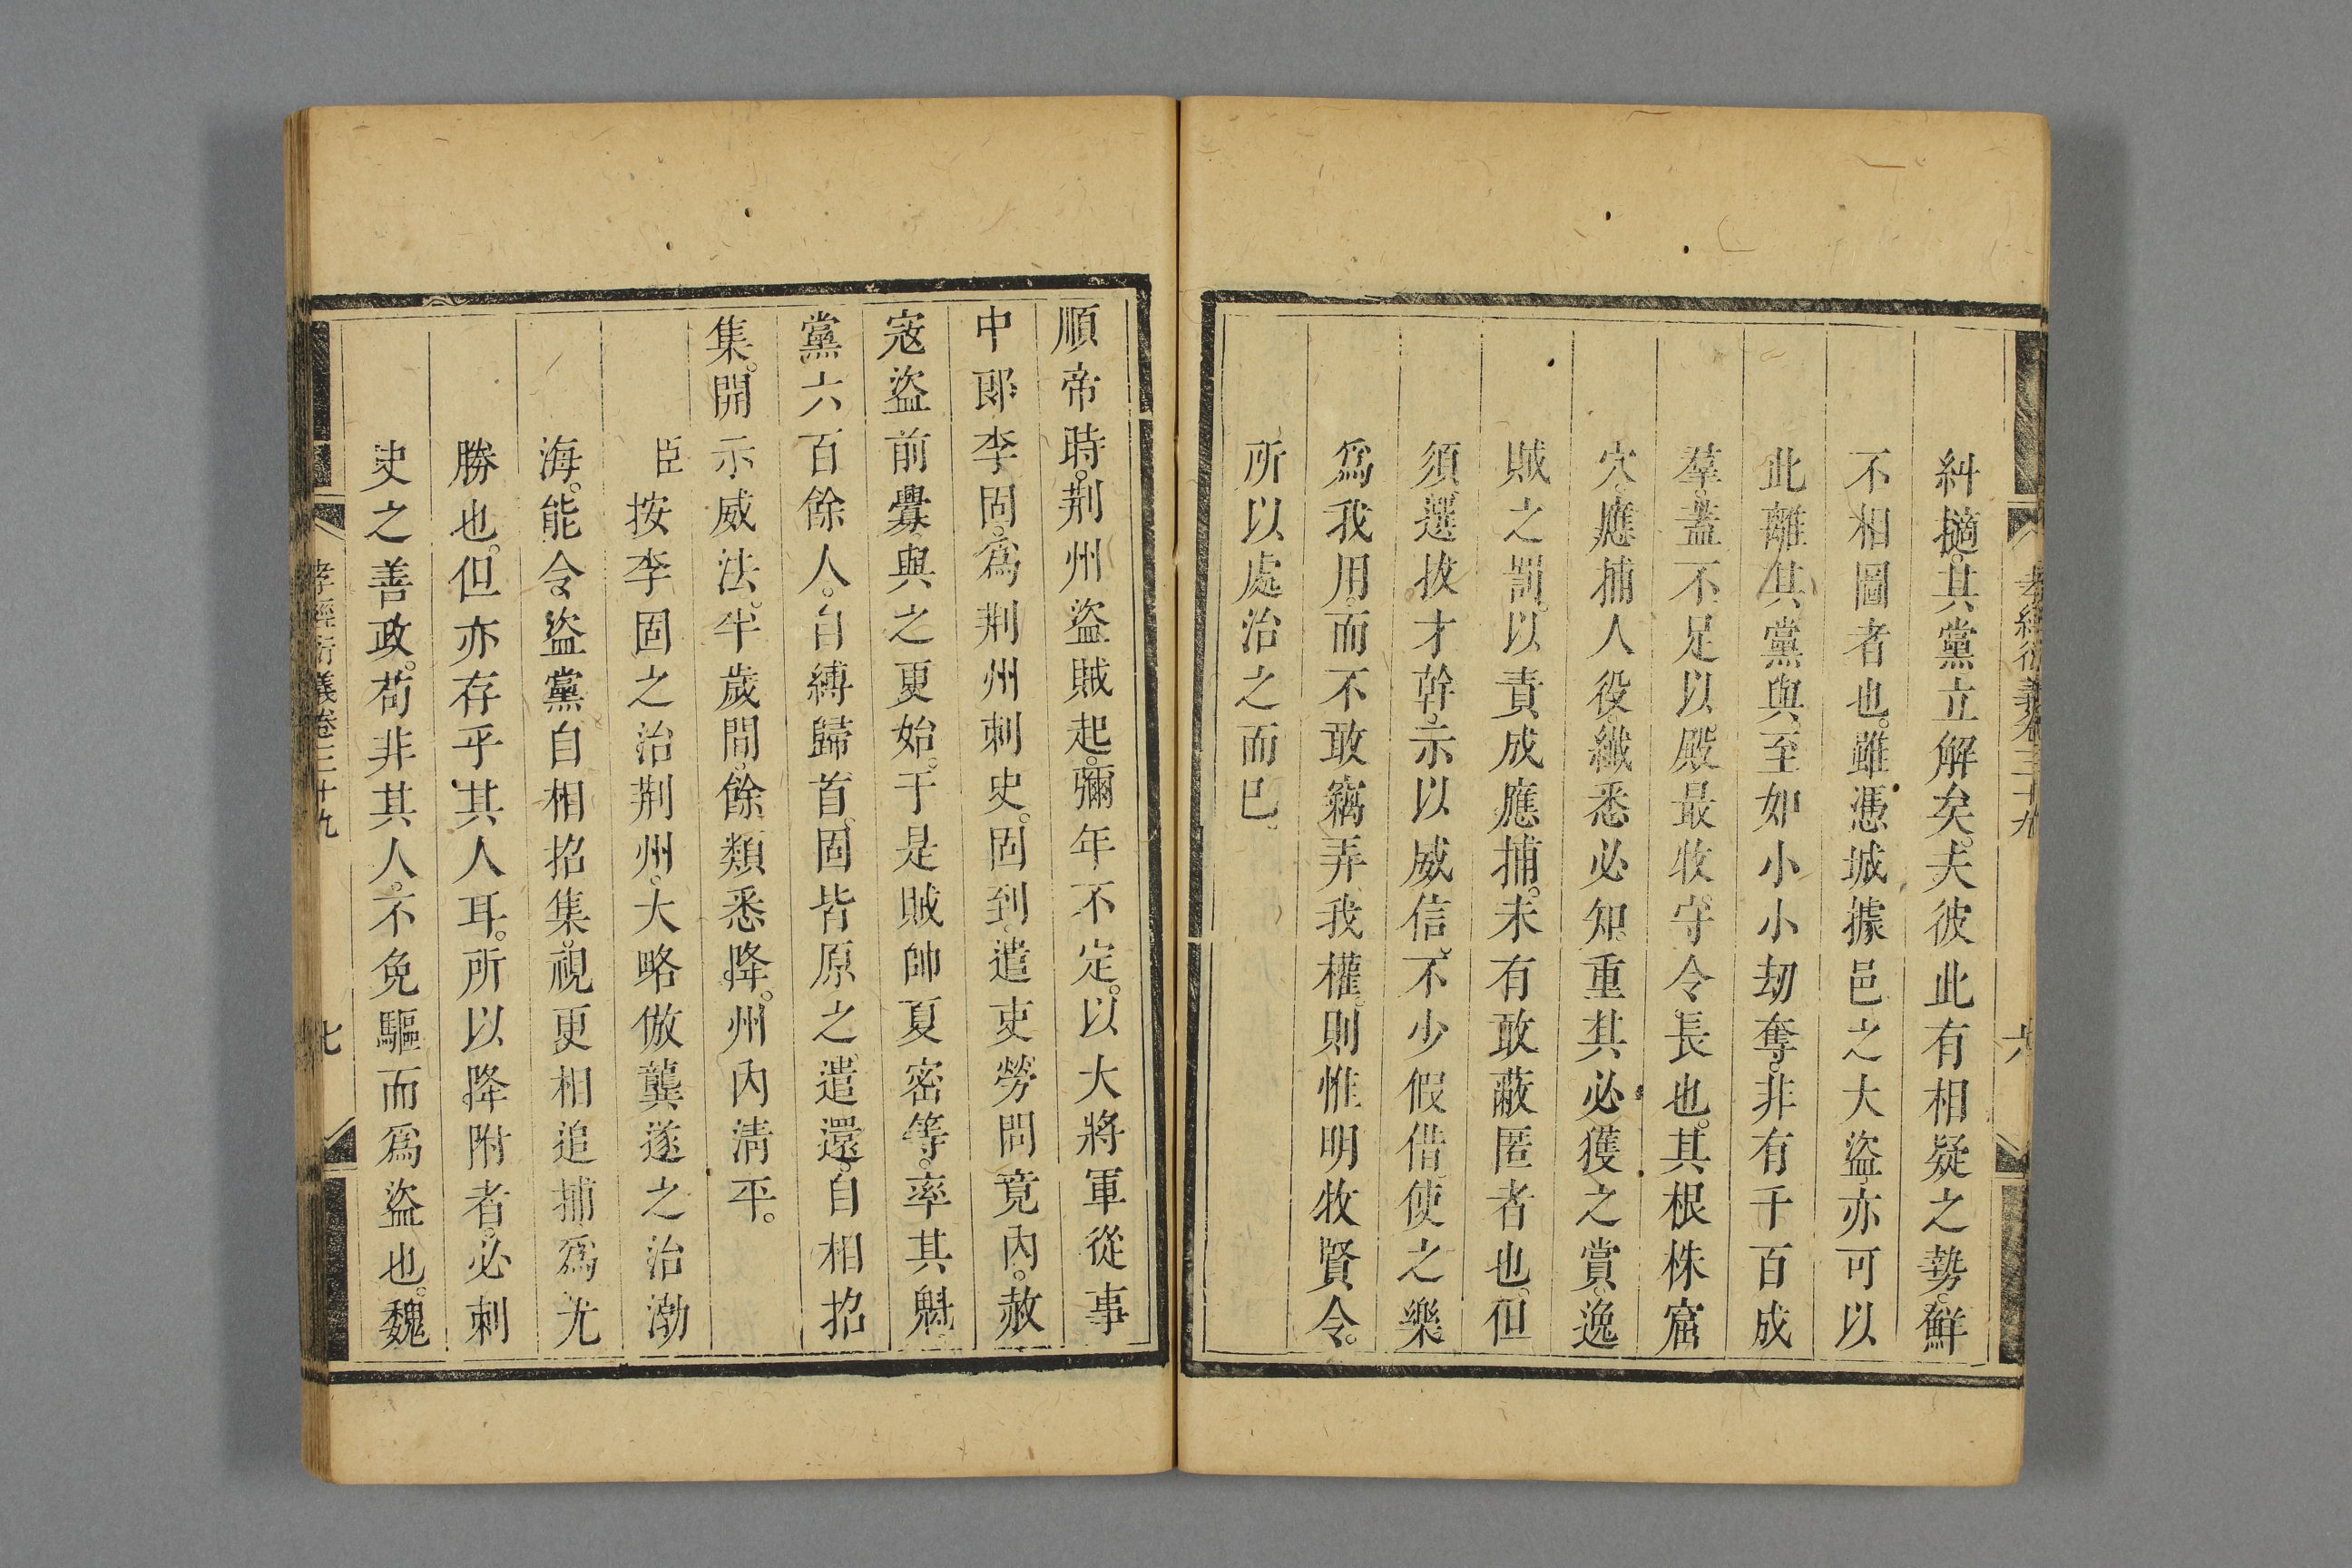 孝經衍義卷三十九
六
糾擿其黨立解矣。夫彼此有相疑之勢。鮮
不相圖者也。雖憑城據邑之大盜亦可以
此離其黨與至如小小刼奪。非有千百成
羣。蓋不足以殿最牧守令長也。其根株窟
穴。應捕人役。纖悉必知。重其必獲之賞。逸
賊之罰。以責成應捕。未有敢蔽匿者也。但
須選拔才幹。示以威信。不少假借。使之樂
爲我用。而不敢竊弄我權。則惟明牧賢令。
所以處治之而已。
順帝時。荆州盜賊起。彌年不定。以大將軍從事
中郎李固。爲荆州刺史。固到。遣吏勞問竟內。赦
寇盜前釁。與之更始。于是賊帥夏密等。率其魁
黨六百餘人。自縛歸首。固皆原之。遣還。自相招
集。開示威法。半歲間。餘類悉降。州內清平。
臣按李固之治荆州。大略倣龔遂之治渤
海。能令盜黨自相招集。視更相追捕爲尤
勝也。但亦存乎其人耳。所以降附者。必刺
史之善政。苟非其人。不免驅而爲盜也。魏
孝經衍義卷三十九
七